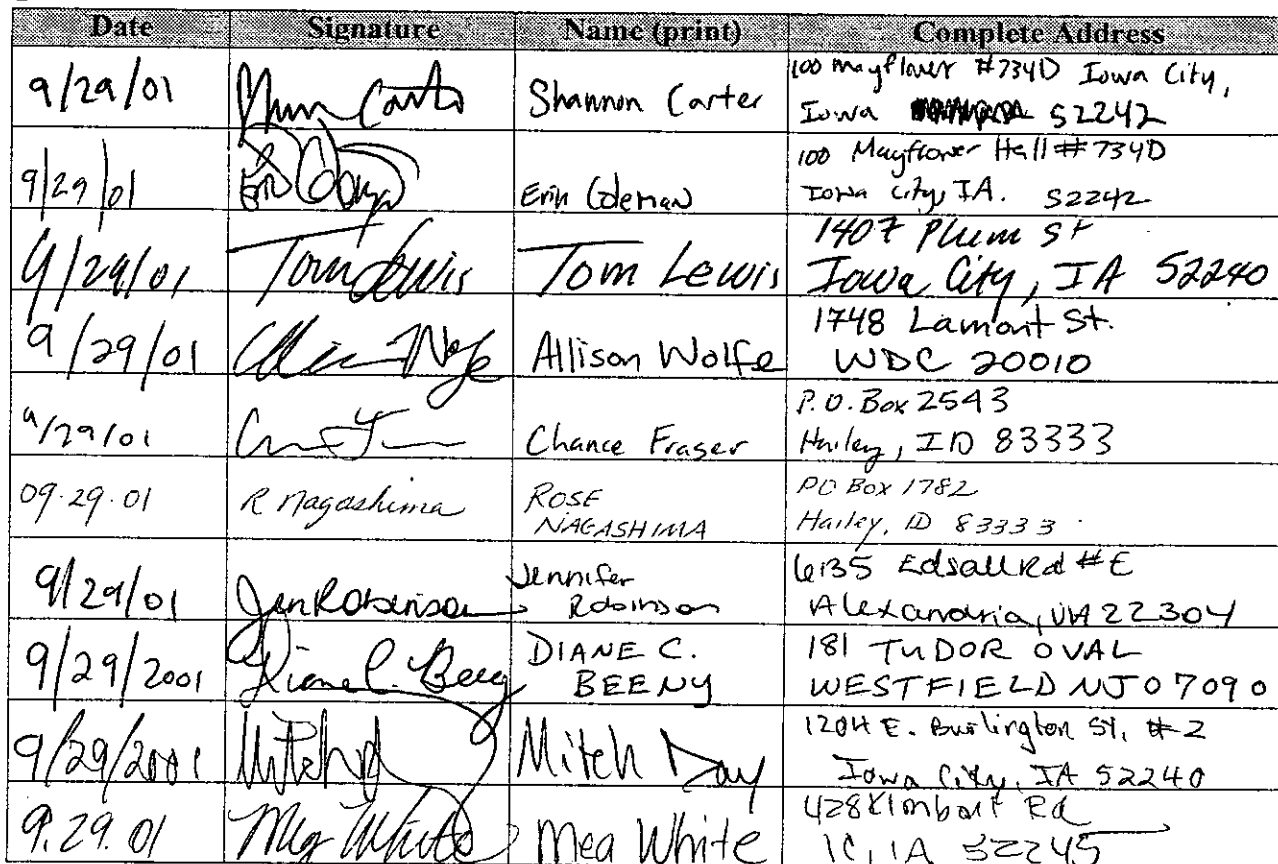 Date Signature Name (print) Complete Address
9/29/01 Carter Shannon Carter 100 Mayflower #734D Iowa City,
Iowa 52242
9/29/01 Erin Coleman 100 Mayflower Hall #734D
Iowa City, IA. 52242
9/29/01 Tom Lewis Tom Lewis 1407 Plum St
Iowa City, IA 52240
9/29/01 Allison Wolfe 1748 Lamont St.
WDC 20010
9/29/01 Chance Fraser P.O. Box 2543
Hailey, ID 83333
09.29.01 R Nagashima ROSE PO Box 1782
NAGASHIMA Hailey, ID 83333
9/29/01 Jen Robinson Jennifer 6135 Edsall Rd #E
Robinson Alexandria, VA 22304
9/29/2001 Diane C. Beeny DIANE C. 181 TUDOR OVAL
BEENY WESTFIELD NJ 07090
9/29/2001 Mitch Day 1204 E. Burlington St, #2
Iowa City, IA 52240
9.29.01 Meg White Meg White 428 Kimball Rd
IC, IA 52245